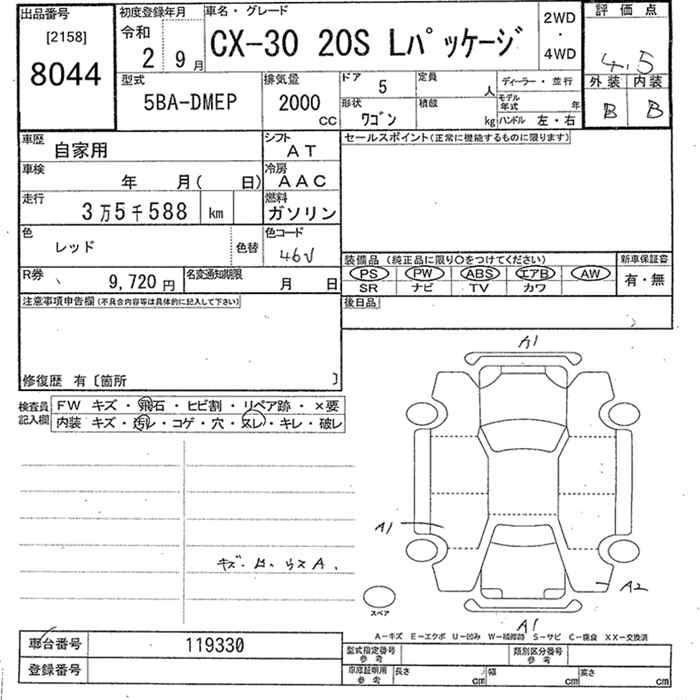 出品番号
[2158]
8044
初度登録年月
令和
2 9月
車名・グレード
CX-30 20S Lパッケージ
2WD
・
4WD
評価点
4.5
外装 内装
B B
型式
5BA-DMEP
排気量
2000
CC
ドア 5
定員 人
ディーラー・並行
形状
ワゴン
積載 kg
モデル年式 年
ハンドル 左・右
車歴 自家用
シフト AT
セールスポイント(正常に機能するものに限ります)
車検 年 月( 日)
冷房 AAC
走行 3万5千588 km
燃料 ガソリン
色 レッド 色替
色コード 46V
装備品 (純正品に限り○をつけてください)
PS PW ABS エアB AW
SR ナビ TV カワ
新車保証書
有・無
R券 9,720円
名変通知期限 月 日
後日品
注意事項申告欄(不具合内容等は具体的に記入して下さい)
修復歴 有〔箇所 〕
検査員記入欄
FW キズ・飛石・ヒビ割・リペア跡・×要
内装 キズ・汚レ・コゲ・穴・スレ・キレ・破レ
A1
A1
A2
A1
スペア
A-キズ E-エクボ U-凹み W-補修跡 S-サビ C-腐食 XX-交換済
車台番号 119330
登録番号
型式指定番号
参考
類別区分番号
参考
車庫証明用
参考
長さ cm 幅 cm 高さ cm